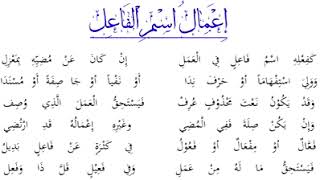 إِعْمَالُ اسْمِ الْفَاعِلِ
كَفِعْلِهِ اسْمُ فَاعِلٍ فِي الْعَمَلِ إِنْ كَانَ عَنْ مُضِيِّهِ بِمَعْزِلِ
وَوَلِيَ اسْتِفْهَامًا أَوْ حَرْفَ نِدَا أَوْ نَفْيًا أَوْ جَا صِفَةً أَوْ مُسْنَدَا
وَقَدْ يَكُونُ نَعْتَ مَحْذُوفٍ عُرِفْ فَيَسْتَحِقُّ الْعَمَلَ الَّذِي وُصِفْ
وَإِنْ يَكُنْ صِلَةَ فَفِي الْمُضِي وَغَيْرِهِ إِعْمَالُهُ قَدِ ارْتُضِي
فَعَّالٌ أَوْ مِفْعَالٌ أَوْ فَعُولُ فِي كَثْرَةٍ عَنْ فَاعِلٍ بَدِيلُ
فَيَسْتَحِقُّ مَا لَهُ مِنْ عَمَلِ وَفِي فَعِيلٍ قَلَّ ذَا وَفَعِلِ